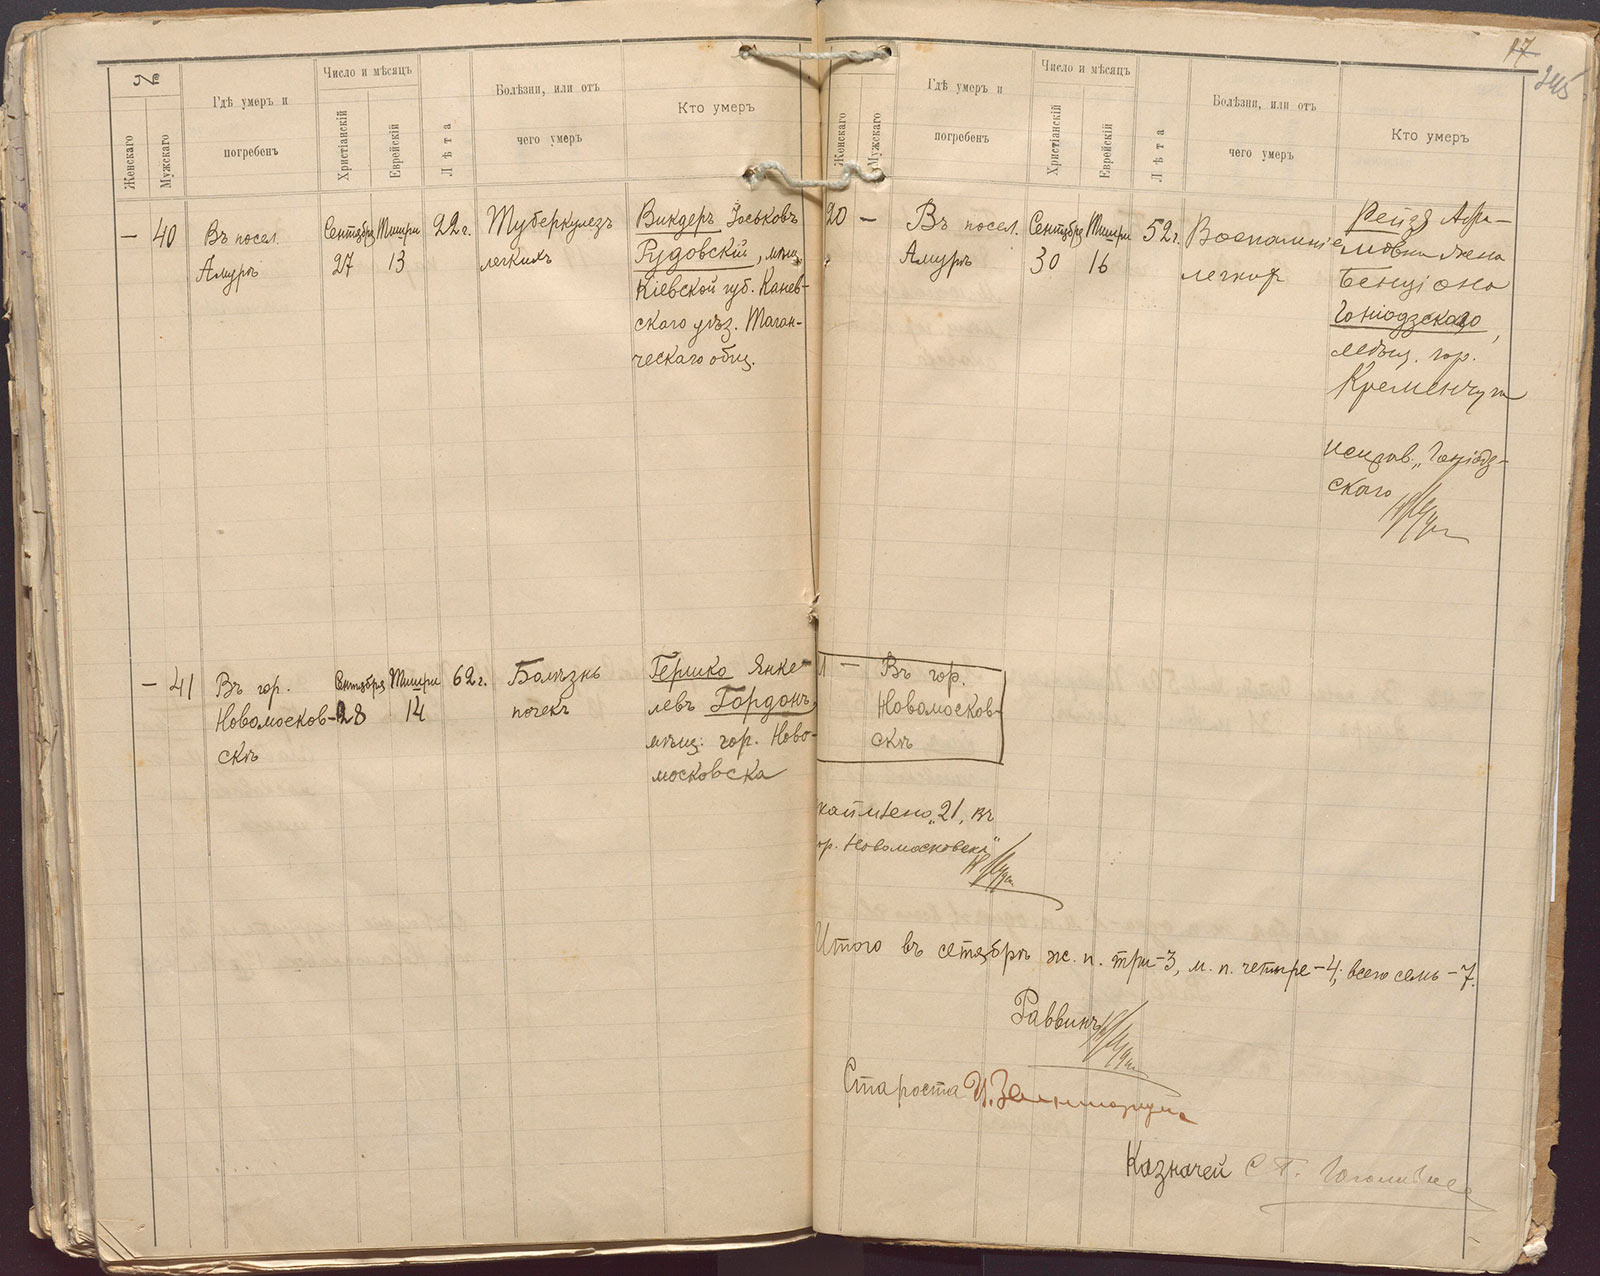 №
Женскаго
Мужскаго
Гдѣ умеръ и
погребенъ
Число и мѣсяцъ
Христіанскій
Еврейскій
Лѣта
Болѣзни, или отъ
чего умеръ
Кто умеръ
— 40
Въ посел.
Амуръ
Сентября
27
Тишри
13
22 г.
Туберкулезъ
легкихъ
Викдеръ Іоськовъ
Рудовскій, мѣщ.
Кіевской губ. Канев-
скаго уѣз. Таган-
ческаго общ.
— 41
Въ гор.
Новомосков-
скѣ
Сентября
28
Тишри
14
62 г.
Болѣзнь
почекъ
Гершко Янке-
левъ Гордонъ,
мѣщ. гор. Ново-
московска
17
245
Женскаго
Мужскаго
Гдѣ умеръ и
погребенъ
Число и мѣсяцъ
Христіанскій
Еврейскій
Лѣта
Болѣзни, или отъ
чего умеръ
Кто умеръ
20 —
Въ посел.
Амуръ
Сентября
30
Тишри
16
52 г.
Воспаленіе
легкихъ
Рейзя Афа-
мовна жена
Бенціона
Гоніодзскаго,
мѣщ. гор.
Кременчуга
исправ. „Гоніодз-
скаго
1 —
Въ гор.
Новомосков-
скѣ
„21, въ
ор. Новомосковскѣ"
Итого въ сетябрѣ ж. п. три-3, м. п. четыре-4, всего семь-7.
Раввинъ
Староста
Казначей С